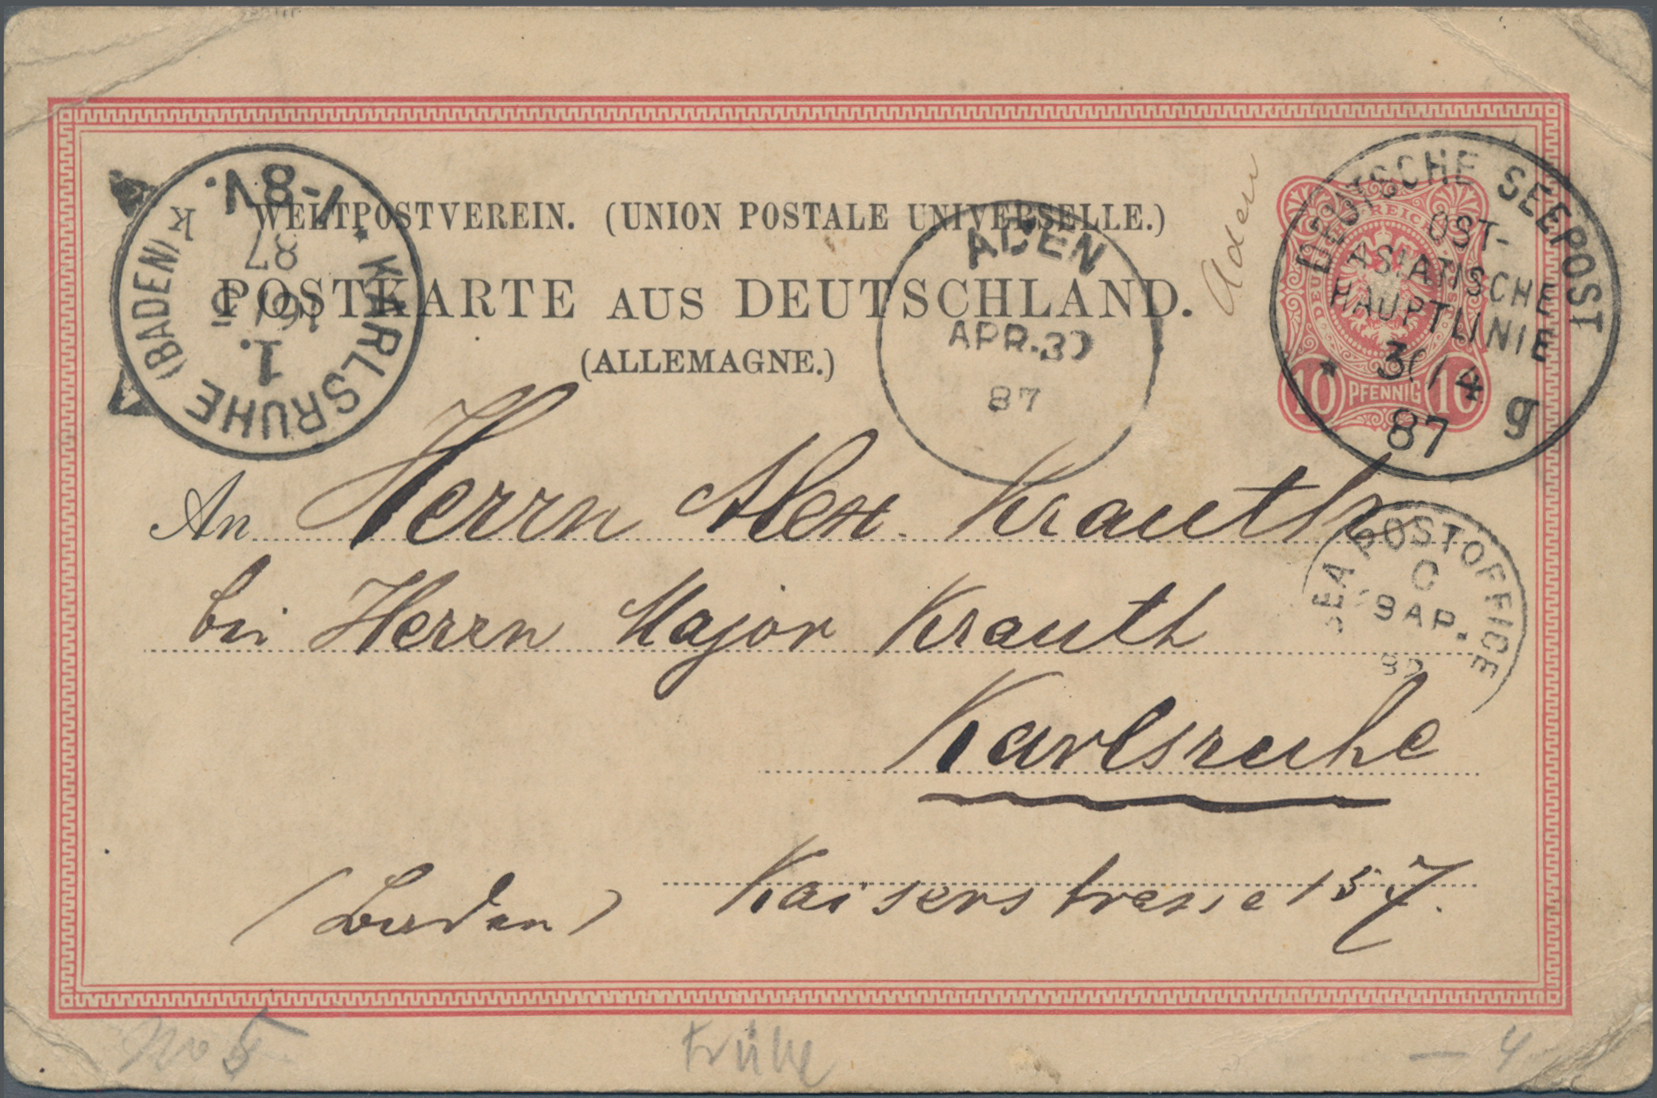 WELTPOSTVEREIN. (UNION POSTALE UNIVERSELLE.)
POSTKARTE AUS DEUTSCHLAND.
(ALLEMAGNE.)
KARLSRUHE (BADEN) K
1.
16/5
87
7-8V.
ADEN
APR.30
87
Aden
DEUTSCHE SEEPOST
OST-
ASIATISCHE
HAUPTLINIE
30/4
87
g
DEUTSCHE REICHSPOST
10 PFENNIG 10
SEA POST OFFICE
C
AP.
87
An Herrn Alex. Krauth
bei Herrn Major Krauth
Karlsruhe
(Baden) Kaiserstrasse 157.
No 5
Frühe
— 4